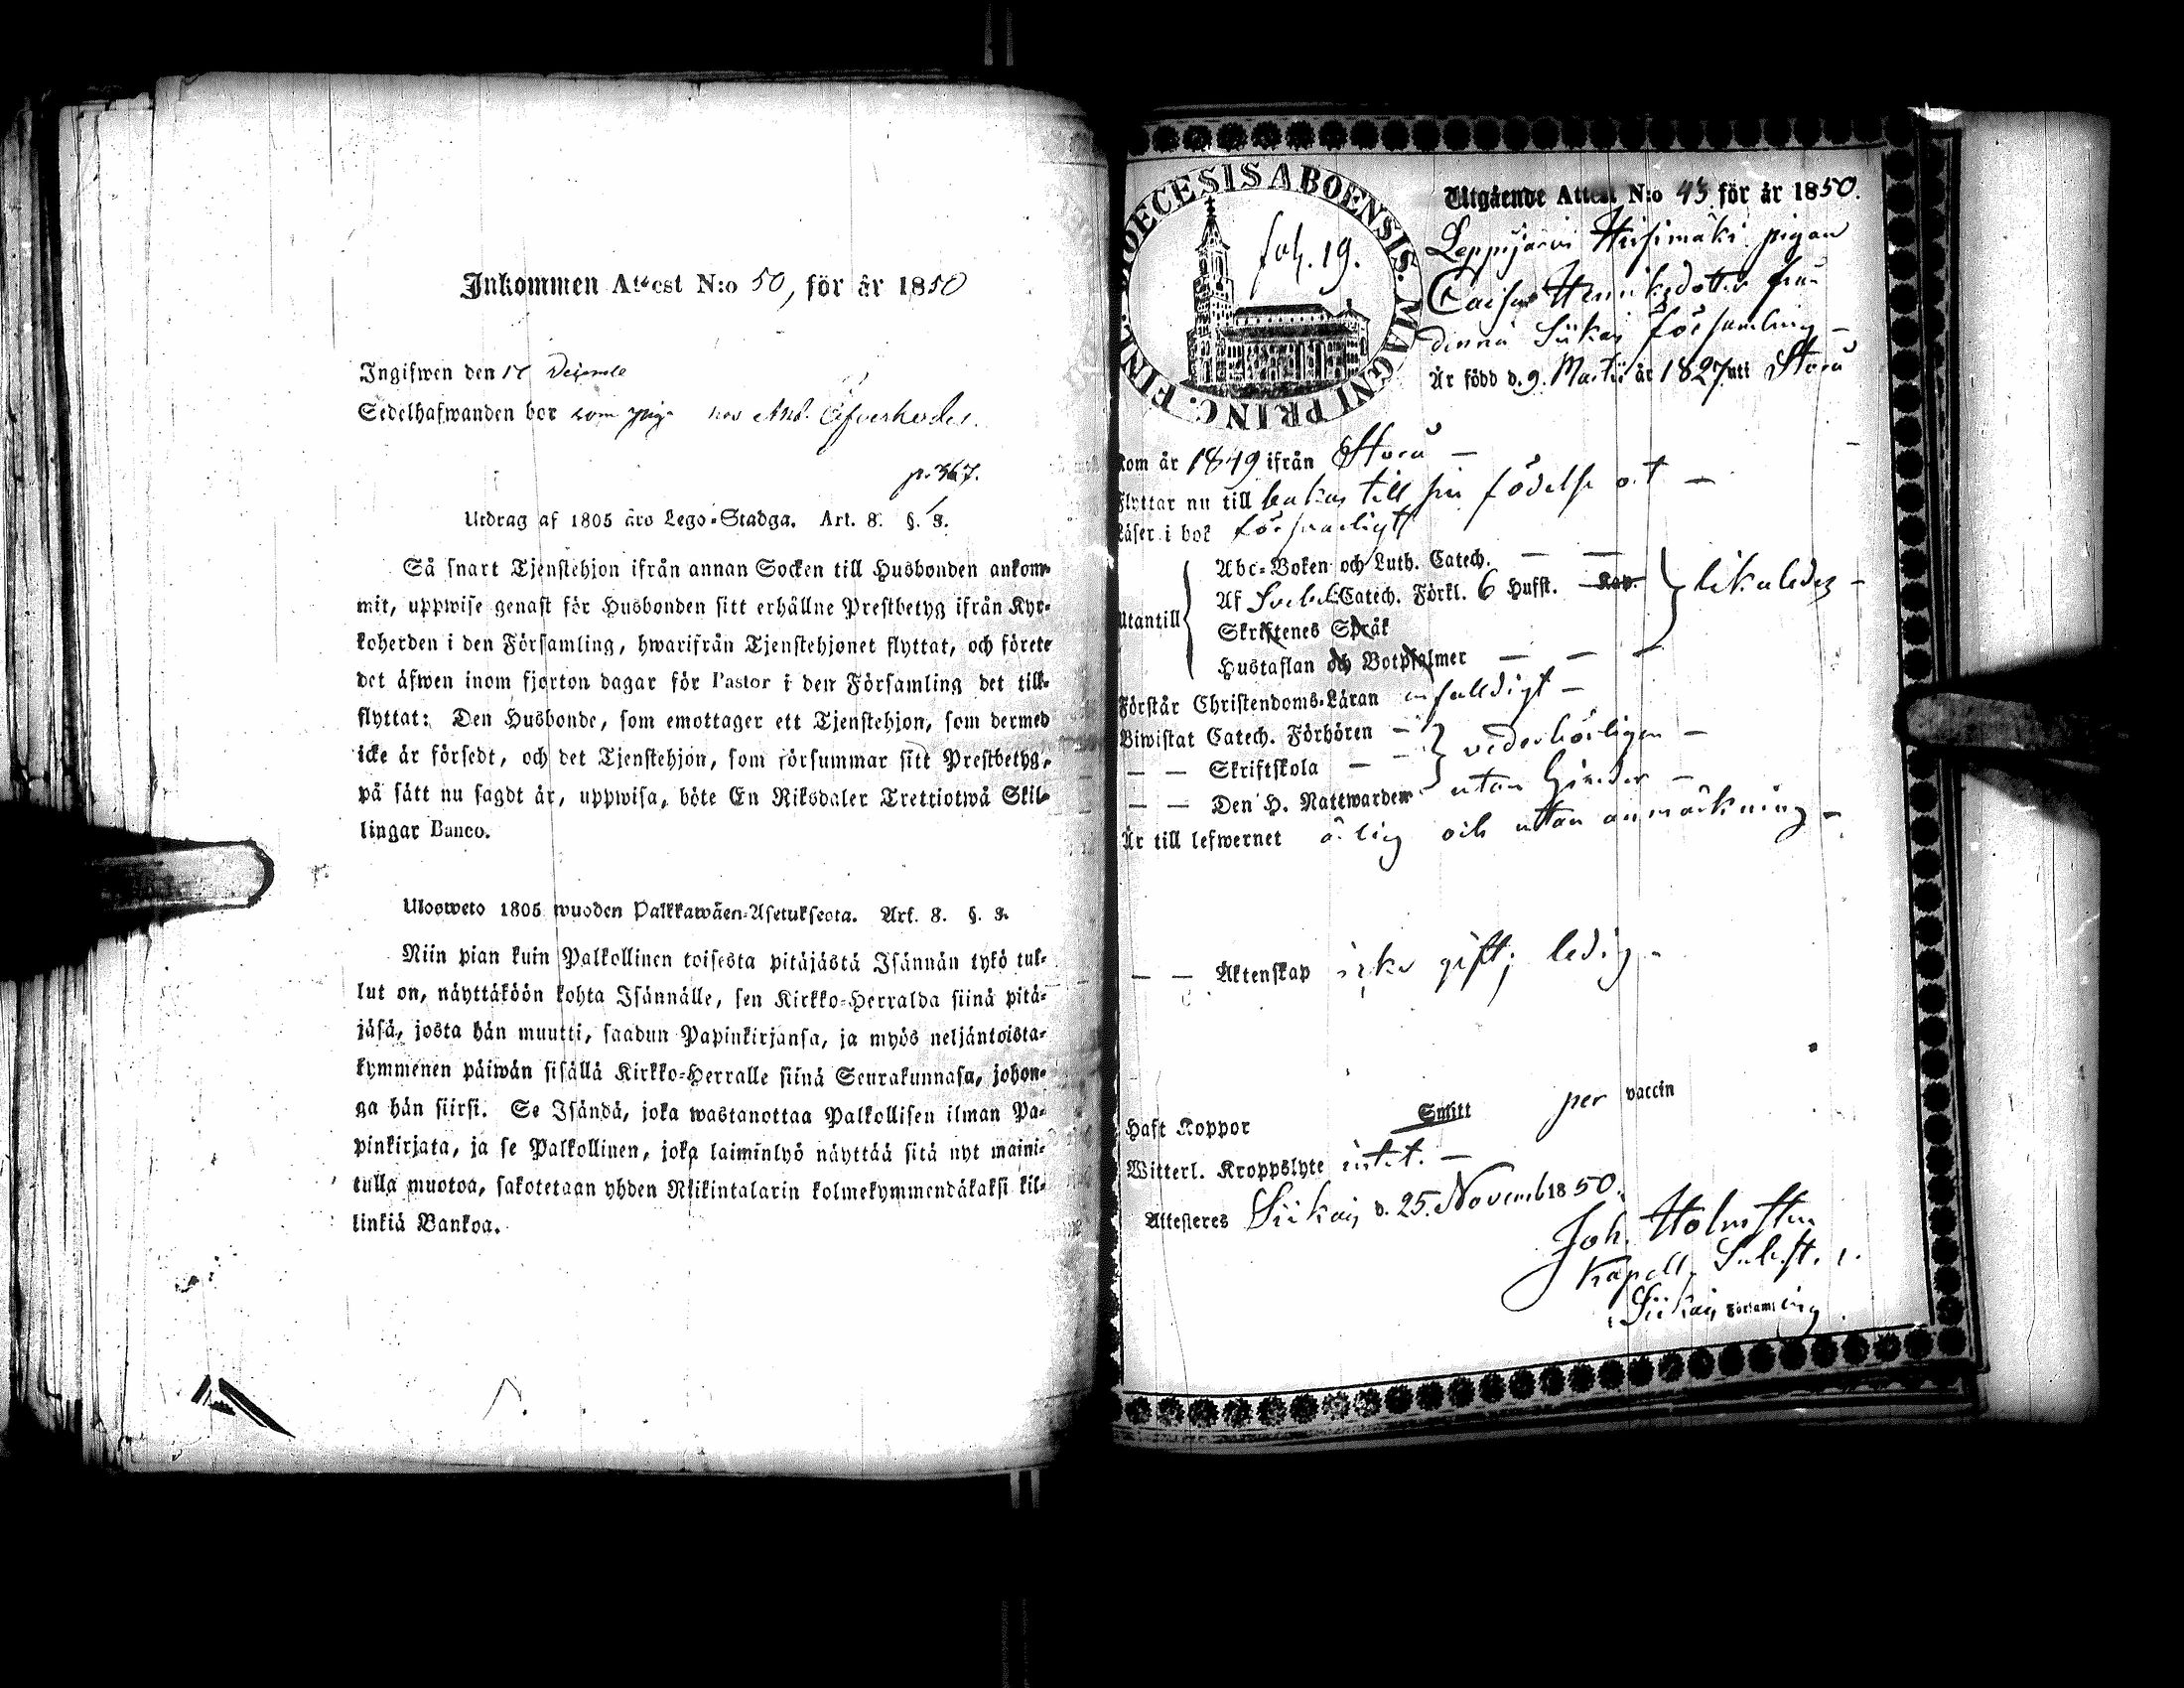 Inkommen Attest N:o 50, för år 1850
Ingifwen den 17
Sedelhafwanden bor som piga hos And.
p. 367.
Utdrag af 1805 års Lego-Stadga. Art. 8. §. 8.
Så snart Tjenstehjon ifrån annan Socken till Husbonden ankom-
mit, uppwise genast för Husbonden sitt erhållne Prestbetyg ifrån Kyr-
koherden i den Församling, hwarifrån Tjenstehjonet flyttat, och förete
det äfwen inom fjorton dagar för Pastor i den Församling det till-
flyttat: Den Husbonde, som emottager ett Tjenstehjon, som dermed
icke är försedt, och det Tjenstehjon, som försummar sitt Prestbetyg,
på sätt nu sagdt är, uppwisa, böte En Riksdaler Trettiotwå Skil-
lingar Banco.
Ulosweto 1805 wuoden Palkkawäen-Asetuksesta. Art. 8. §. 8.
Niin pian kuin Palkollinen toisesta pitäjästä Isännän tykö tul-
lut on, näyttäköön kohta Isännälle, sen Kirkko-Herralda siinä pitä-
jäsä, josta hän muutti, saadun Papinkirjansa, ja myös neljäntoista-
kymmenen päiwän sisällä Kirkko-Herralle siinä Seurakunnasa, johon-
ga hän siirsi. Se Isändä, joka wastanottaa Palkollisen ilman Pa-
pinkirjata, ja se Palkollinen, joka laiminlyö näyttää sitä nyt maini-
tulla muotoa, sakotetaan yhden Riikintalarin kolmekymmendäkaksi kil-
linkiä Bankoa.
DIOECESIS ABOENSIS. MAGNI PRINC. FINL.
fol. 19.
Utgående Attest N:o 43 för år 1850.
Leppijärvi Hiisimäki pigan
Caisa Henriksdotter från
denna Siikais församling
Är född d. 9. Martii år 1827 uti Storå
Kom år 1849 ifrån Storå
Flyttar nu till bakas till sin födelse ort
Läser i bok försvarligt
Abc-Boken och Luth. Catech.
Af Svebel. Catech. Förkl. 6 Hufst. Kap.
Utantill
likaledes
Skriftenes Språk
Hustaflan och Botpsalmer
Förstår Christendoms-Läran enfalldigt
Biwistat Catech. Förhören
Skriftskola
vederbörligen
Den H. Nattwarden utan hinder
Är till lefwernet ärlig och uttan anmärkning
Äktenskap icke gift; ledig
Haft Koppor Smitt per vaccin
Witterl. Kroppslyte intet.
Attesteres Siikais d. 25. Novemb 1850.
Joh. Holmsten
Kapell. Subst. i.
Siikais Församling